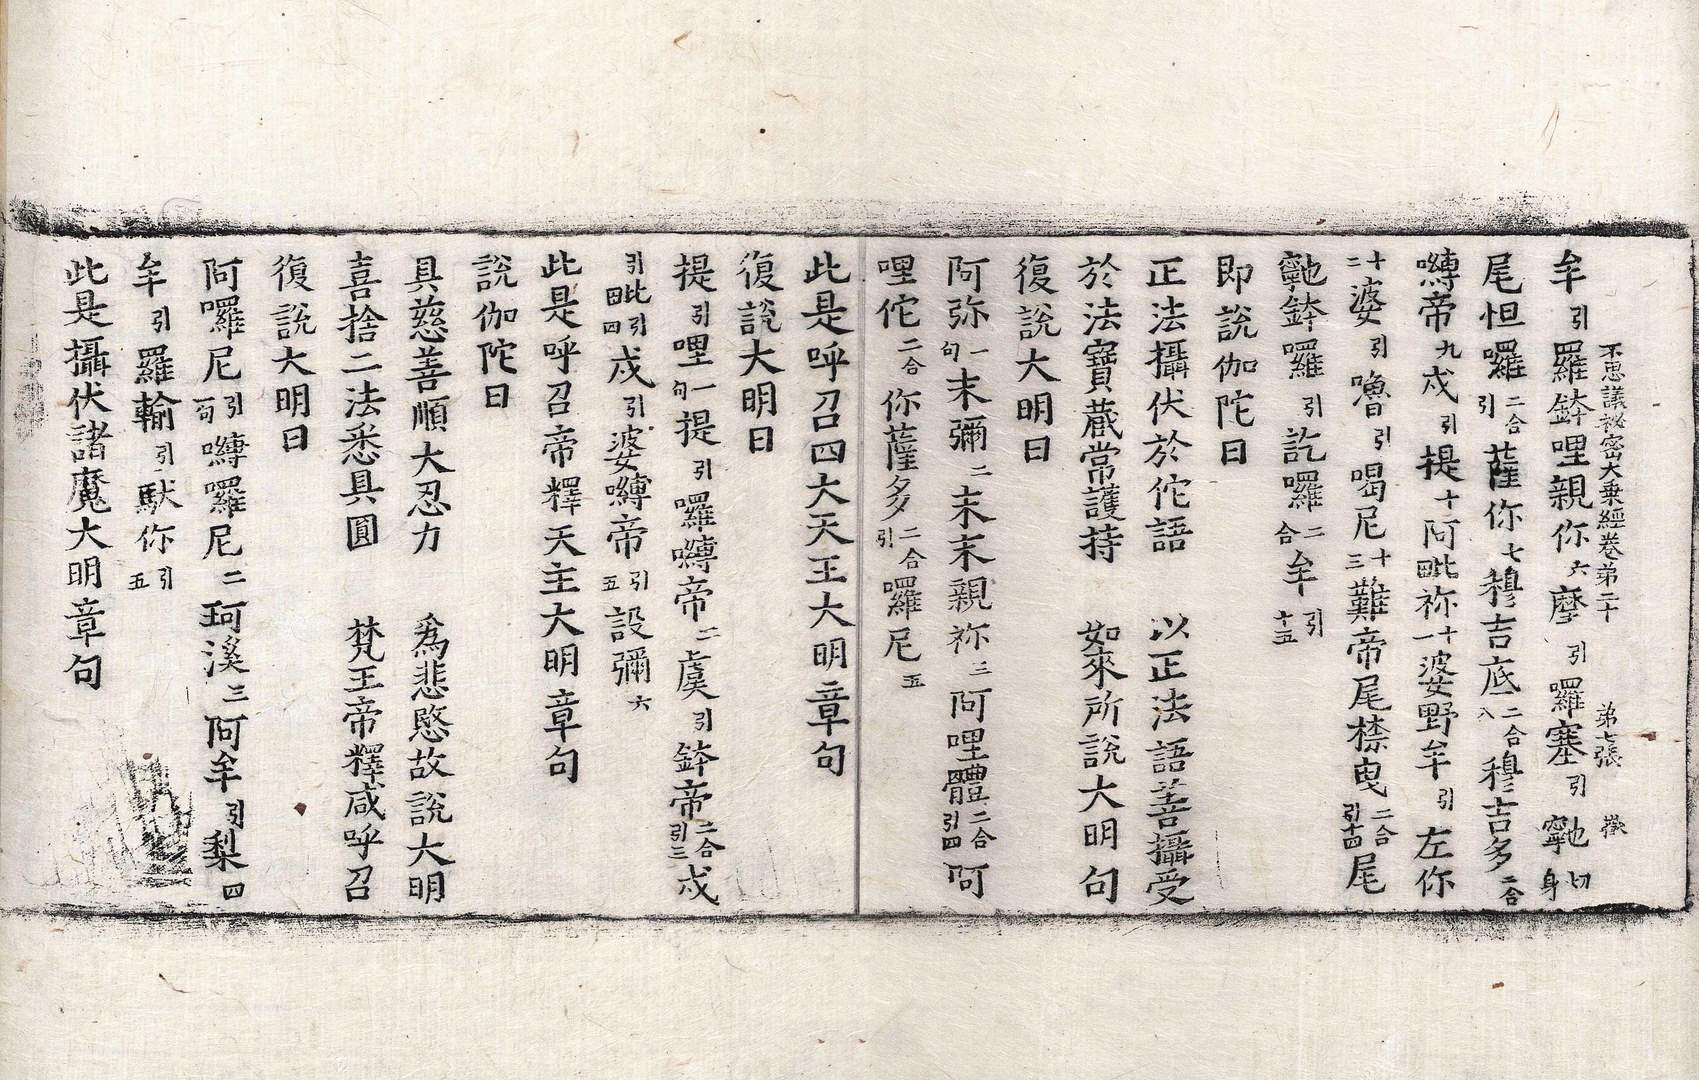 不思議祕密大乗經卷第二十　第七張　㰸
牟引羅鉢哩親你六摩引羅塞引𪘨切身
尾怛囉二合引薩你七穆吉底二合八穆吉多二合
嚩帝九戍引提十阿毗祢十一婆野牟引左你
十二婆引嚕引喝尼十三難帝尾㯲曳二合引十四尾
鉢囉引訖囉二合牟引十五
即說伽陀曰
正法攝伏於佗語　以正法語善攝受
於法寶藏常護持　如來所說大明句
復說大明曰
阿弥一句末彌二末末親祢三阿哩體二合引四阿
哩佗二合你薩多二合引囉尼五
此是呼召四大天王大明章句
復說大明曰
提引哩一句提引囉嚩帝二虞引鉢帝二合引三戍
引毗引四戍引婆嚩帝引五設彌六
此是呼召帝釋天主大明章句
說伽陀曰
具慈善順大忍力　為悲愍故說大明
喜捨二法悉具圓　梵王帝釋咸呼召
復說大明曰
阿囉尼引一句嚩囉尼二珂溪三阿牟引梨四
牟引羅輸引馱你引五
此是攝伏諸魔大明章句